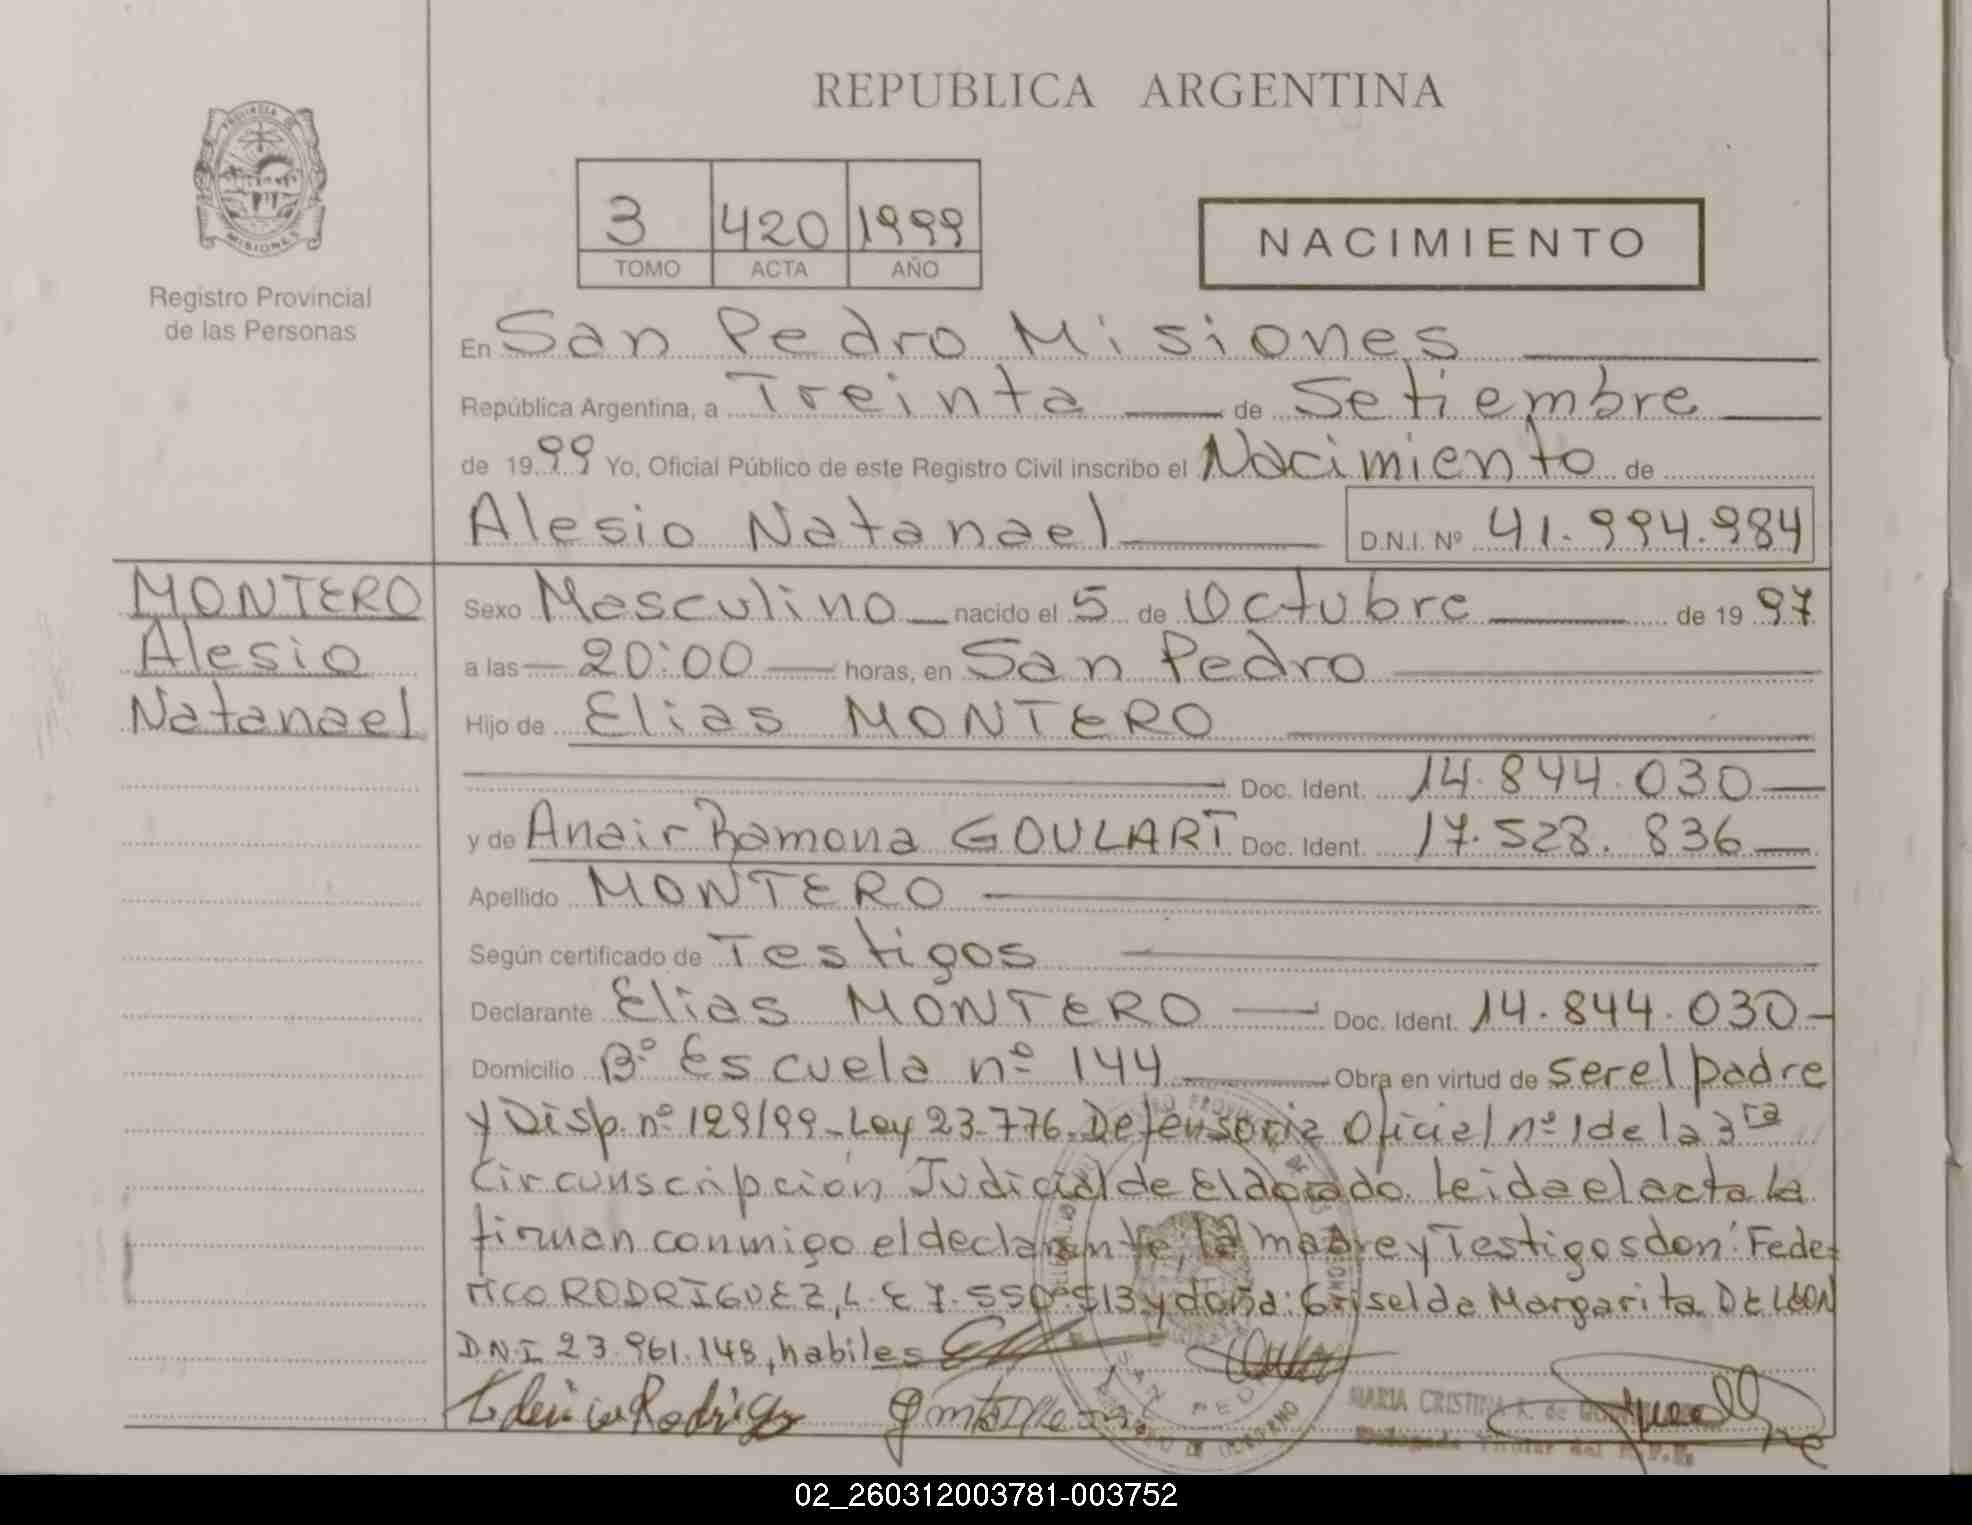 REPUBLICA ARGENTINA
PROVINCIA DE
MISIONES
Registro Provincial
de las Personas
3 420 1999
TOMO ACTA AÑO
NACIMIENTO
En San Pedro Misiones
República Argentina, a Treinta de Setiembre
de 1999 Yo, Oficial Público de este Registro Civil inscribo el Nacimiento de
Alesio Natanael D.N.I. Nº 41.994.984
MONTERO
Alesio
Natanael
Sexo Masculino nacido el 5 de Octubre de 1997
a las 20:00 horas, en San Pedro
Hijo de Elias MONTERO
Doc. Ident. 14.844.030
y de Anair Ramona GOULART Doc. Ident. 17.528.836
Apellido MONTERO
Según certificado de Testigos
Declarante Elias MONTERO Doc. Ident. 14.844.030
Domicilio Bº Escuela nº 144 Obra en virtud de ser el padre
y Disp. nº 129/99-Ley 23.776. Defensoria Oficial nº 1 de la 3ra
Circunscripción Judicial de Eldorado. Leida el acta la
firman conmigo el declarante, la madre y Testigos don: Fede-
rico RODRIGUEZ, L.E 7.550.513 y doña: Griselda Margarita DE LEON
D.N.I 23.961.148, habiles
Federico Rodrigz
MARIA CRISTINA R. de
Delegada Titular del R.P.P.
02_260312003781-003752